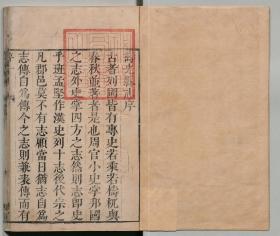 壽光縣志序
古者列國皆有專史若乘若檮杌與
春秋並著者是也周官小史掌邦國
之志外史掌四方之志然則志卽史
乎班孟堅作漢史列十志後代宗之
凡郡邑莫不有志顧當日猶志自爲
志傳自爲傳今之志則兼表傳而有